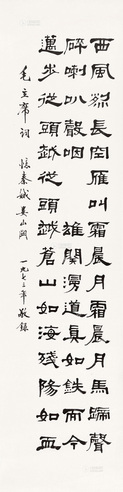 西風烈長空雁叫霜晨月霜晨月馬蹄聲
碎喇叭聲咽 雄關漫道真如鐵而今
邁步從頭越從頭越蒼山如海殘陽如血
毛主席詞 憶秦娥婁山關 一九七三年 敬錄